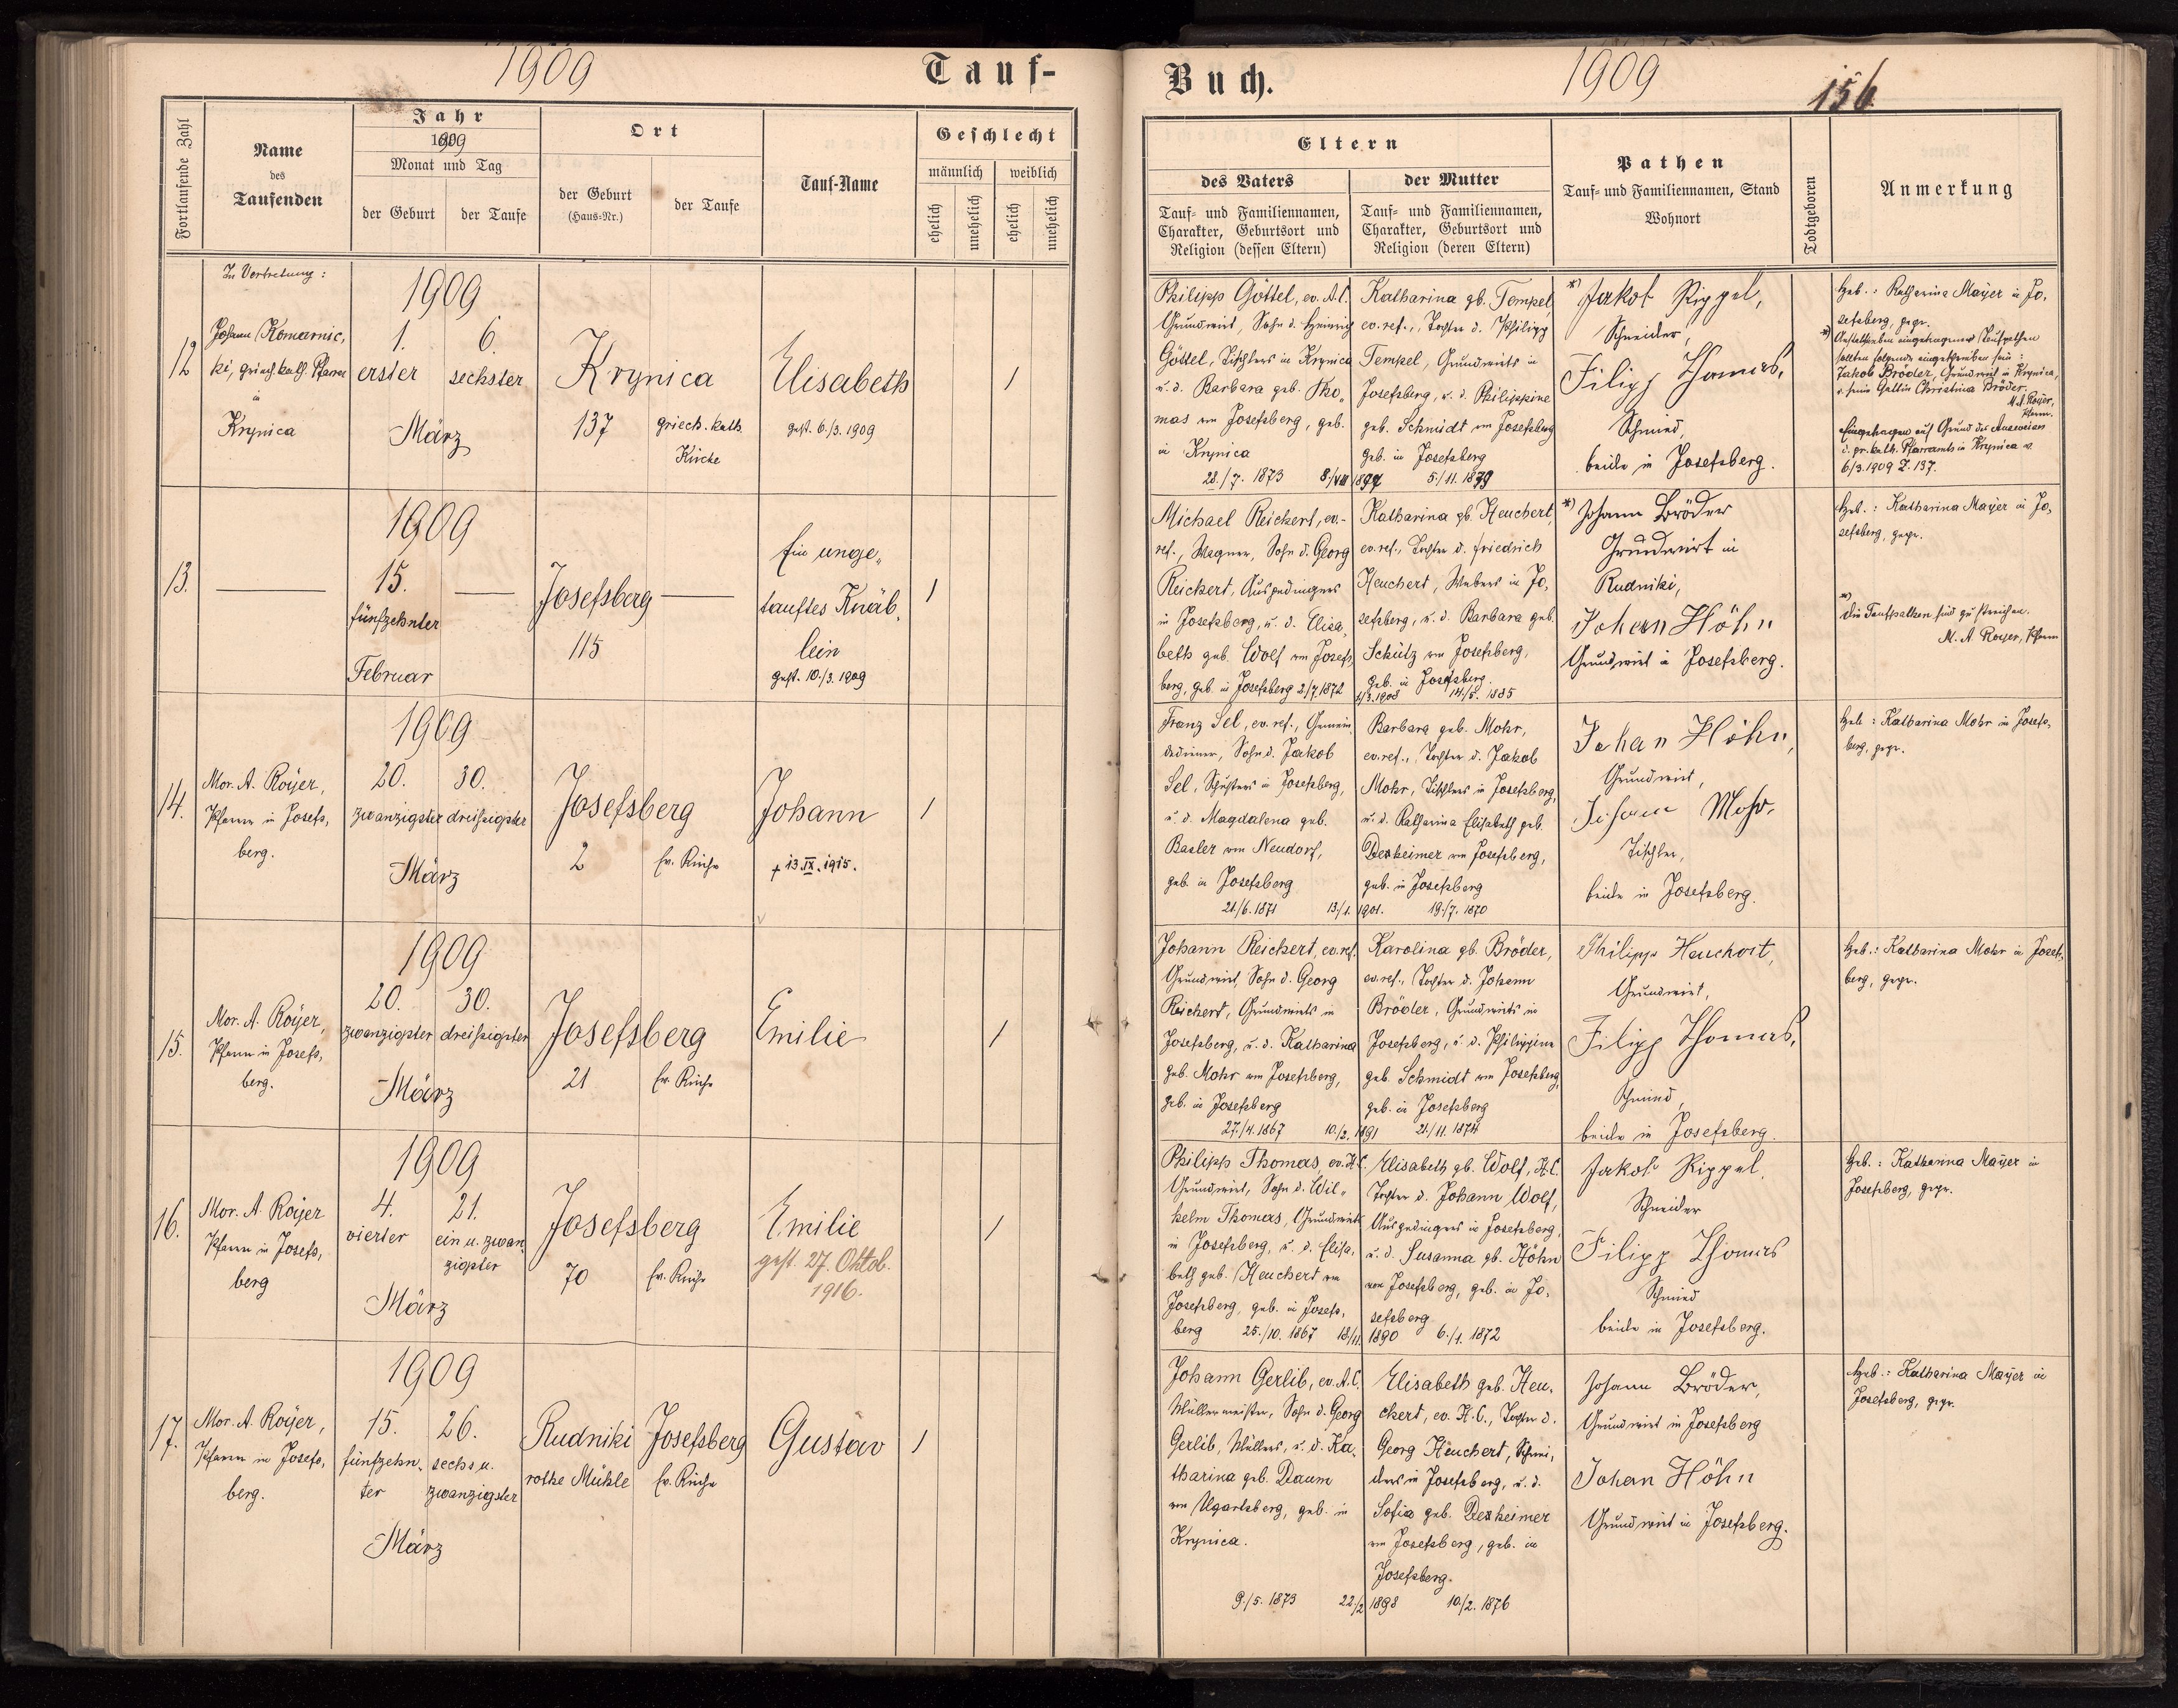 1909
Tauf-
Fortlaufende Zahl
Name
des
Taufenden
Jahr
1909
Monat und Tag
der Geburt
der Taufe
Ort
der Geburt
(Haus-Nr.)
der Taufe
Tauf-Name
Geschlecht
männlich
weiblich
ehelich
unehelich
ehelich
unehelich
12
In Vertretung:
Johann Komarnic,
ki, griech. kath. Pfarrer
in
Krynica
1909
1. 6.
erster sechster
März
Krynica
137
griech. kath.
Kirche
Elisabeth
gest. 6./3. 1909
1
13.
1909
15.
fünfzehnter
Februar
Josefsberg
115
Ein unge„
tauftes Knäb,
lein
gest. 10./3. 1909
1
14.
Mor. A. Royer,
Pfarrer in Josefs,
berg.
1909
20. 30.
zwanzigster dreißigster
März
Josefsberg
2 Ev. Kirche
Johann
+ 13. IX. 1915.
1
15.
Mor. A. Royer,
Pfarrer in Josefs,
berg.
1909
20. 30.
zwanzigster dreißigster
März
Josefsberg
21 Ev. Kirche
Emilie
1
16.
Mor. A. Royer
Pfarrer in Josefs,
berg
1909
4. 21.
vierter ein u. zwan
zigster
März
Josefsberg
70 Ev. Kirche
Emilie
gest. 27. Oktob.
1916.
1
17.
Mor. A. Royer,
Pfarrer in Josefs,
berg.
1909
15. 26.
fünfzehn, sechs u.
ter zwanzigster
März
Rudniki Josefsberg
rothe Mühle Ev. Kirche
Gustav
1
Buch.
1909
156
Eltern
des Vaters
der Mutter
Tauf- und Familiennamen,
Charakter, Geburtsort und
Religion (dessen Eltern)
Tauf- und Familiennamen,
Charakter, Geburtsort und
Religion (deren Eltern)
Pathen
Tauf- und Familiennamen, Stand
Wohnort
Todtgeboren
Anmerkung
Philipp Göttel, ev. A.C.
Grundwirt, Sohn d. Heinrich
Göttel, Tischlers in Krynica
u. d. Barbara geb. Tho„
mas von Josefsberg, geb.
in Krynica
28./7. 1873 8./VIII 1897
Katharina gb. Tempel,
ev. ref., Tochter d. Philipp
Tempel, Grundwirts in
Josefsberg, u. d. Philippine
geb. Schmidt von Josefsberg
geb. in Josefsberg
5./11. 1879
*) Jakob Rippel,
Schneider,
Filipp Thomas,
Schmied,
beide in Josefsberg.
Heb.: Katharina Mayer in Jo,
sefsberg, gepr.
*) Anstatt eben eingetragener Taufpathen
sollten folgende eingeschrieben sein:
Jakob Bröder, Grundwirt in Krynica,
u. seine Gattin Christina Bröder.
M. A. Royer,
Pfarrer.
Eingetragen auf Grund des Ausweises
d. gr. kath. Pfarramts in Krynica v.
6/3. 1909 Z. 137.
Michael Reichert, ev.-
ref., Wagner, Sohn d. Georg
Reichert, Ausgedingers
in Josefsberg, u. d. Elisa,
beth geb. Wolf von Josefs,
berg, geb. in Josefsberg 2./7. 1872
Katharina gb. Heuchert,
ev. ref., Tochter d. Friedrich
Heuchert, Webers in Jo,
sefsberg, u. d. Barbara geb.
Schütz von Josefsberg,
geb. in Josefsberg.
/3. 1908 14./5. 1885
*) Johann Bröder
Grundwirt in
Rudniki,
Johann Höhn
Grundwirt in Josefsberg.
Heb.: Katharina Mayer in Jo,
sefsberg, gepr.
*) Die Taufpathen sind zu streichen.
M. A. Royer, Pfarrer
Franz Sel, ev. ref., Gemein,
dediener, Sohn d. Jakob
Sel, Schusters in Josefsberg,
u. d. Magdalena geb.
Basler von Neudorf,
geb. in Josefsberg
21./6. 1871 13/1. 1901.
Barbara geb. Mohr,
ev. ref., Tochter d. Jakob
Mohr, Tischlers in Josefsberg,
u. d. Katharina Elisabeth geb.
Dexheimer von Josefsberg,
geb. in Josefsberg
19./7. 1870
Johan Höhn,
Grundwirt,
Johann Mohr,
Tischler,
beide in Josefsberg.
Heb.: Katharina Mohr in Josefs,
berg, gepr.
Johann Reichert, ev. ref.
Grundwirt, Sohn d. Georg
Reichert, Grundwirts in
Josefsberg, u. d. Katharina
geb. Mohr von Josefsberg,
geb. in Josefsberg
27./4. 1867 10./2. 1891
Karolina gb. Bröder,
ev. ref., Tochter d. Johann
Bröder, Grundwirts in
Josefsberg, u. d. Philippine
geb. Schmidt von Josefsberg,
geb. in Josefsberg
21./11. 1874
Philipp Heuchert,
Grundwirt,
Filipp Thomas,
Schmied,
beide in Josefsberg.
Heb.: Katharina Mohr in Josefs,
berg, gepr.
Philipp Thomas, ev. H.C.
Grundwirt, Sohn d. Wil„
helm Thomas, Grundwirts
in Josefsberg, u. d. Elisa,
beth geb. Heuchert von
Josefsberg, geb. in Josefs,
berg 25./10. 1867 18/11. 1890
Elisabeth gb. Wolf, H.C.
Tochter d. Johann Wolf,
Ausgedingers in Josefsberg,
u. d. Susanna gb. Höhn
von Josefsberg, geb. in Jo,
sefsberg
6./1. 1872
Jakob Rippel,
Schneider
Filipp Thomas
Schmied
beide in Josefsberg.
Heb.: Katharina Mayer in
Josefsberg, gepr.
Johann Gerlib, ev. A.C.
Müllermeister, Sohn d. Georg
Gerlib, Müllers, u. d. Ka,
tharina geb. Daum
von Ugartsberg, geb. in
Krynica.
9./5. 1873 22/2 1898
Elisabeth geb. Heu,
chert, ev. H.C., Tochter d.
Georg Heuchert, Schnei,
ders in Josefsberg, u. d.
Sofia geb. Dexheimer
von Josefsberg, geb. in
Josefsberg.
10./2. 1876
Johann Bröder,
Grundwirt in Josefsberg
Johan Höhn
Grundwirt in Josefsberg.
Heb.: Katharina Mayer in
Josefsberg, gepr.